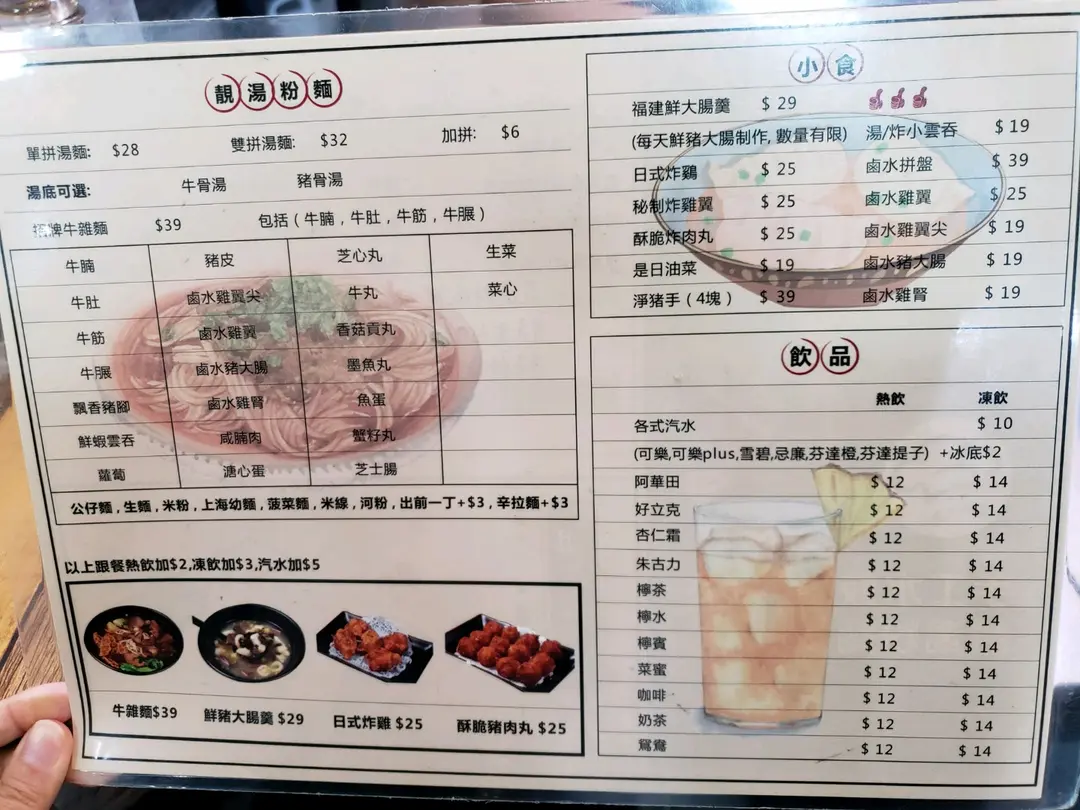 靚湯粉麵
單拼湯麵: $28 雙拼湯麵: $32 加拼: $6
湯底可選: 牛骨湯 豬骨湯
招牌牛雜麵 $39 包括 ( 牛腩 , 牛肚 , 牛筋 , 牛𦟌 )
牛腩 豬皮 芝心丸 生菜
牛肚 鹵水雞翼尖 牛丸 菜心
牛筋 鹵水雞翼 香菇貢丸
牛𦟌 鹵水豬大腸 墨魚丸
飄香豬腳 鹵水雞腎 魚蛋
鮮蝦雲吞 咸腩肉 蟹籽丸
蘿蔔 溏心蛋 芝士腸
公仔麵 , 生麵 , 米粉 , 上海幼麵 , 菠菜麵 , 米線 , 河粉 , 出前一丁+$3 , 辛拉麵+$3
以上跟餐熱飲加$2,凍飲加$3,汽水加$5
牛雜麵$39 鮮豬大腸羹 $29 日式炸雞 $25 酥脆豬肉丸 $25
小食
福建鮮大腸羹 $ 29
(每天鮮豬大腸制作, 數量有限) 湯/炸小雲吞 $ 19
日式炸鷄 $ 25 鹵水拼盤 $ 39
秘制炸雞翼 $ 25 鹵水雞翼 $ 25
酥脆炸肉丸 $ 25 鹵水雞翼尖 $ 19
是日油菜 $ 19 鹵水豬大腸 $ 19
淨猪手 ( 4塊 ) $ 39 鹵水雞腎 $ 19
飲品
熱飲 凍飲
各式汽水 $ 10
(可樂,可樂plus,雪碧,忌廉,芬達橙,芬達提子) +冰底$2
阿華田 $ 12 $ 14
好立克 $ 12 $ 14
杏仁霜 $ 12 $ 14
朱古力 $ 12 $ 14
檸茶 $ 12 $ 14
檸水 $ 12 $ 14
檸賓 $ 12 $ 14
菜蜜 $ 12 $ 14
咖啡 $ 12 $ 14
奶茶 $ 12 $ 14
鴛鴦 $ 12 $ 14